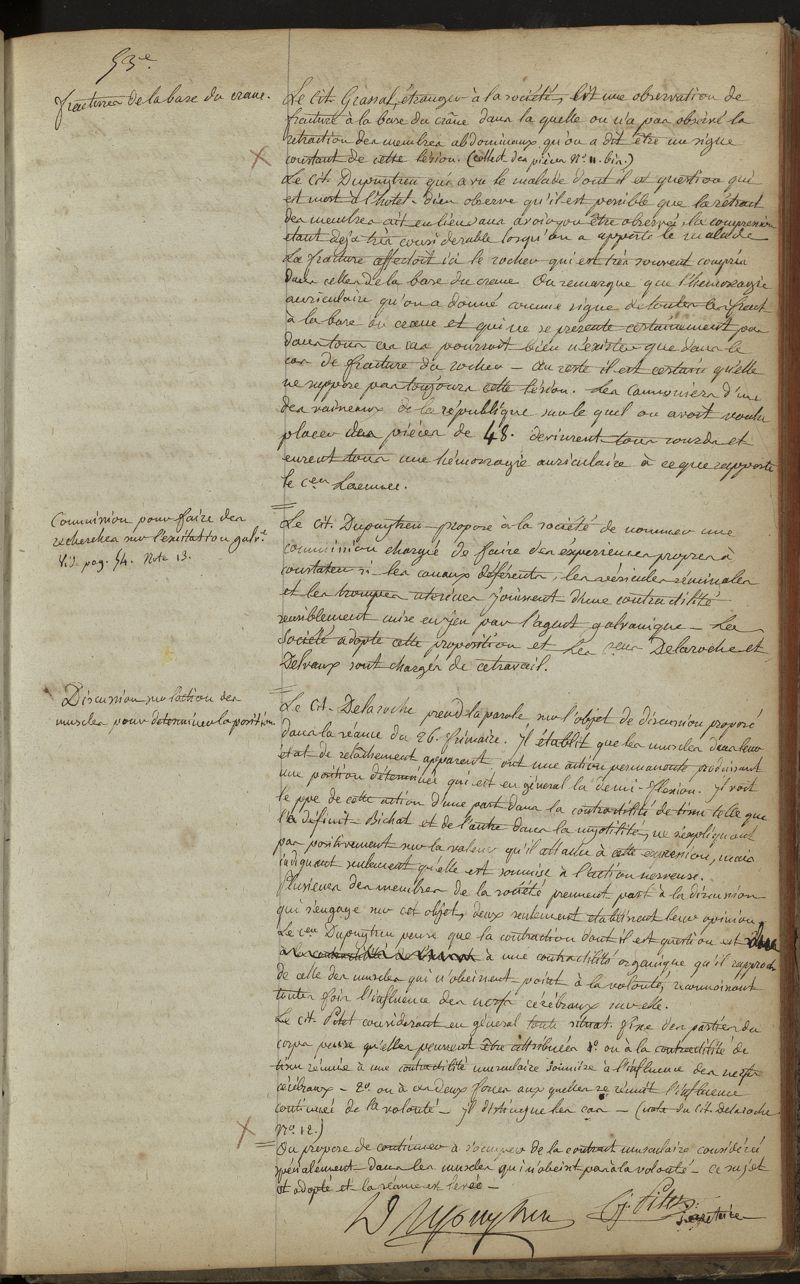 53e.
fractures de la base du crane.
Le cit. Grassal, étranger à la société, lit une observation de
fracture à la base du crâne dans la quelle on n'a pas observé la
rétraction des membres abdominaux qu'on a dit être un signe
constant de cette lésion. (collect. des pièces N° 11. bis.)
Le cit. Dupuytren qui a vu le malade dont il est question qui
est mort à l'hotel-dieu observe qu'il est possible que la rétract
des membres ait eu lieu sans avoir pu être observée, la compression
etant déja très considerable lorsqu'on a apporté le malade
La fracture affectoit ici le rocher qui est très souvent compris
dans celles de la base du crane. On remarque que l'hemorragie
auriculaire qu'on a donné comme signe de toutes les fract
à la base du crane et qui ne se présente certainement pas
dans tous ces cas pourroit bien n'exister que dans le
cas de fracture du rocher – Au reste il est certain qu'elle
ne suppose pas toujours cette lésion. Les canoniers d'un
des vaisseaux de la république sur le quel on avoit voulu
placer des pièces de 48. devinrent tous sourds et
eurent tous une hémorragie auriculaire à ce que rapporte
le cen Laennec.
Commission pour faire des
recherches sur l'exitation galv.e
Vid. pag. 54. Note 13.
Le cit. Dupuytren propose à la société de nommer une
commission chargée de faire des expériences propres à
constater si les canaux déférents, les vésicules séminales
et les trompes uterines jouissent d'une contractilité
sensiblement mise en jeu par l'agent galvanique – La
Société adopte cette proposition et Les cens Delaroche et
Delvaux sont chargés de ce travail.
Discussion sur l'action des
muscles pour déterminer la position.
Le cit. Delaroche prend la parole sur l'objet de discussion proposé
dans la séance du 26. frimaire. Il établit que les muscles dans leur
état de relâchement apparent, ont une action permanente, produisant
une position déterminée qui est en géneral la demi-flexion. Il voit
le ppe de cette action d'une part dans la contractilité de tissu telle que
l'a définit Bichat et de l'autre dans la myotilité, ne s'expliquant
pas positivement sur la valeur qu'il attache à cette expression, mais
indiquant seulement qu'elle est soumise à l'action nerveuse.
Plusieurs des membres de la société prennent part à la discussion
qui s'engage sur cet objet, deux seulement établissent leur opinion.
Le cen Dupuytren pense que la contraction dont il est question est due
à une contractilité organique qu'il rapproche
de celle des muscles qui n'obeissent point à la volonté, reconnoissant
toutes fois l'influence des nerfs cérébraux sur elle.
Le cit. Petet considerant en général toute situat. fixe des parties du
corps pense qu'elles peuvent être attribuées 1° ou à la contractilité de
tissu réunie à une contractilité musculaire soumise à l'influence des nerfs
cérébraux – 2° ou à ces deux forces aux quelles se réunit l'influence
continuée de la volonté – Il distingue les cas – (note du cit. Delaroche
N° 12.)
On propose de continuer à s'occuper de la contract musculaire considérée
spécialement dans les muscles qui n'obeissent pas à la volonté – ce sujet
est adopté et la séance est levée –
Dupuytren
secretaire